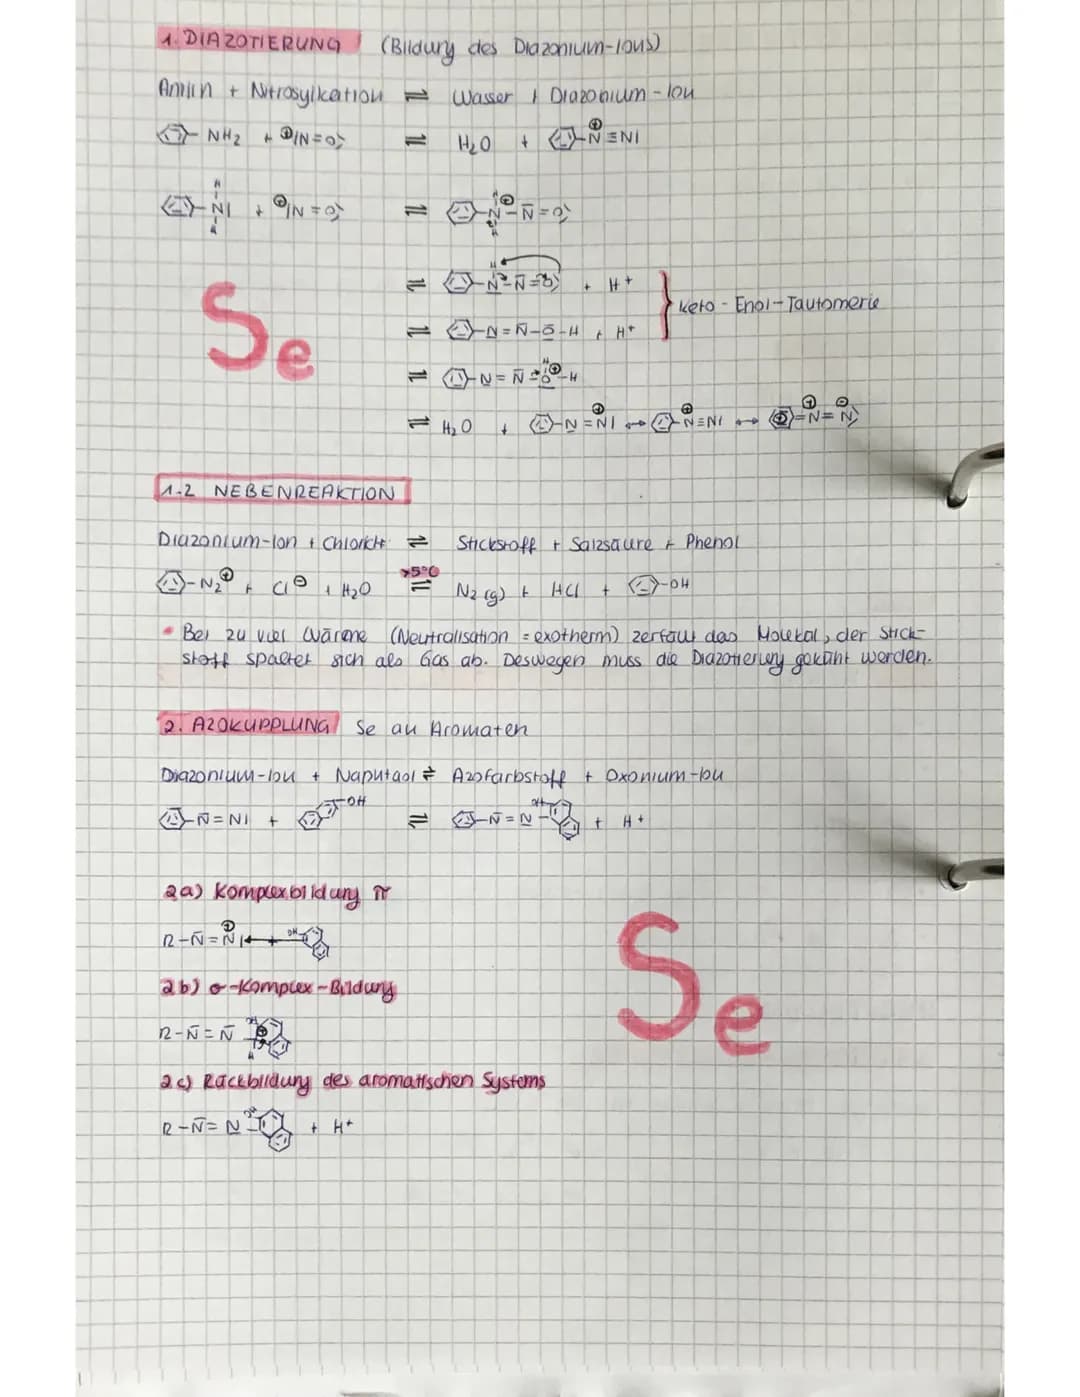 1. DIAZOTIERUNG (Bildung des Diazonium-Ions)
Anilin + Nitrosylkation ⇌ Wasser + Diazonium-Ion
NH₂ + ⊕|N=O ⇌ H₂O + ⊕ N≡N|
H N| H + ⊕|N=O ⇌ H ⊕ N-N̄=O H
⇌ H N-N̄=O + H+
Keto-Enol-Tautomerie
⇌ N=N̄-O-H + H+
Se
⇌ N=N̄-O-H H ⊕
⇌ H₂O + N=N| ⊕ ↔ N≡N| ⊕ ↔ ⊕ =N=N ⊖
1.2 NEBENREAKTION
Diazonium-Ion + Chlorid+ ⇌ Stickstoff + Salzsäure + Phenol
N₂⊕ + Cl⊖ + H₂O >5°C ⇌ N₂(g) + HCl + -OH
• Bei zu viel Wärme (Neutralisation = exotherm) zerfällt das Molekül, der Stick-
stoff spaltet sich als Gas ab. Deswegen muss die Diazotierung gekühlt werden.
2. AZOKUPPLUNG Se an Aromaten
Diazonium-Ion + Naphtaol ⇌ Azofarbstoff + Oxonium-Ion
-N̄=N| + -OH ⇌ -N̄=N- OH + H+
2a) Komplexbildung π
R-N̄=N| ⊕ OH
2b) σ-Komplex-Bildung
R-N̄=N̄ OH ⊕ H
Se
2c) Rückbildung des aromatischen Systems
R-N̄=N- OH + H+